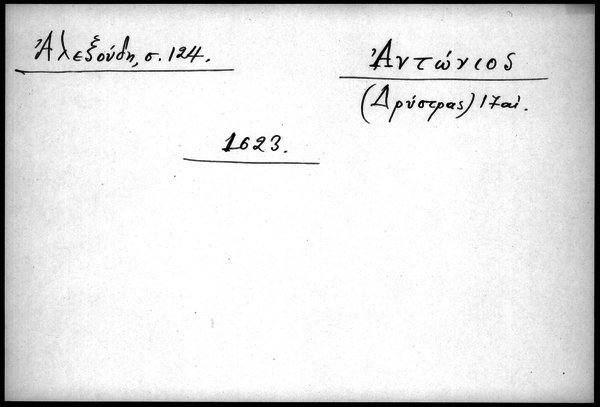 Ἀλεξούδη, σ. 124.
Ἀντώνιος
(Δρύστρας) 17 αἰ.
1623.